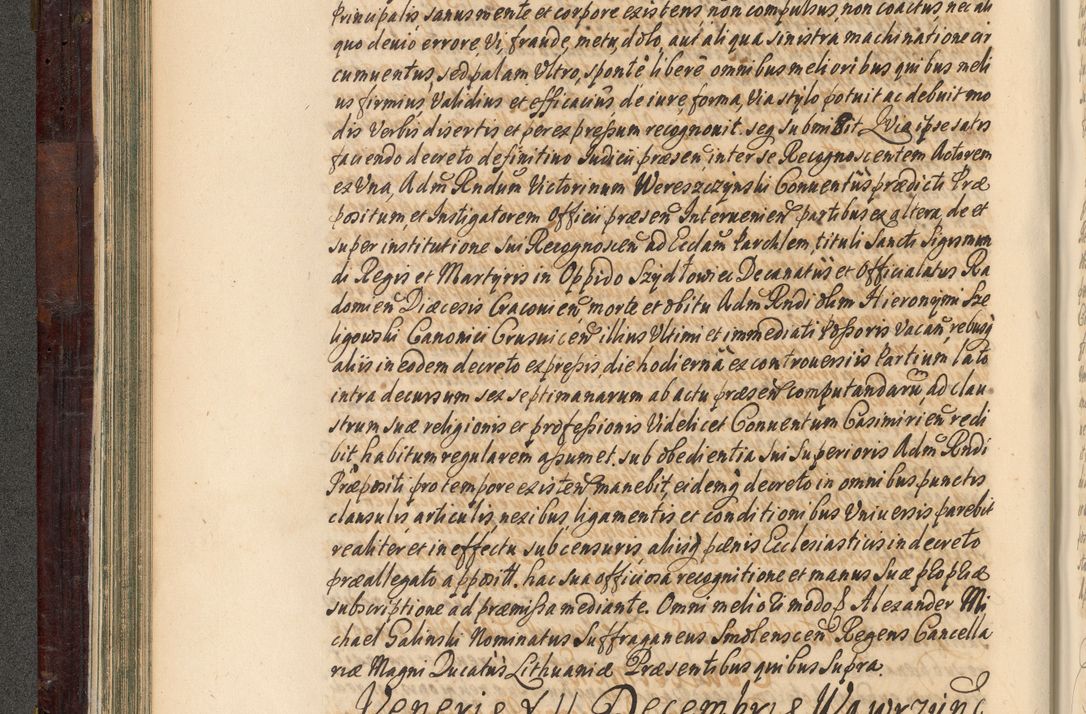 Principalis sanus mente et corpore existens non compulsus, non coactus, nec ali
quo deuio errore, Vi, fraude, metu, dolo, aut aliqua sinistra machinatione cir
cumuentus, sed palam Vltro, sponte libere omnibus melioribus quibus meli
us firmius, Validius et efficacius de iure, forma, Via stylo potuit ac debuit mo
dis Verbis disertis et per expressum recognouit. seq submisit Quia ipse satis
faciendo decreto definitiuo Iudicii præsen inter se Recognoscentem Actorem
ex Vna, Adm Rndum Victorinum Wereszczynski Conuentus prædicti Præ
positum, et Instigatorem Officii præsen Interuenien partibus ex altera, de et
super institutione sui Recognoscen ad Ecclam Parchlem, tituli Sancti Sigismun
di Regis et Martyris in Oppido Szydłowiec Decanatus et Officialatus Ra
domien Diæcesis Cracouien, morte et obitu Adm Rndi olim Hieronymi Sze
ligowski Canonici Crusuicen illius Vltimi et immediati Possoris Vacan, rebusq
aliis in eodem decreto expressis, die hodierna ex controuersiis Partium lato
intra decursum sex septimanarum ab actu præsen computandaru ad clau
strum suæ religionis et professionis Videlicet Conuentum Casimirien redi
bit, habitum regularem assumet, sub obedientia sui Superioris Adm Rndi
Præpositi pro tempore existen manebit, eidemq decreto in omnibus punctis
clausulis articulis, nexibus, ligamentis et conditionibus Vniuersis parebit
realiter et in effectu sub censuris aliisq pænis Ecclesiasticis in decreto
præallegato apposit. hac sua officiosa recognitione et manus suæ propriæ
subscriptione ad præmissa mediante. Omni meliori modo Alexander Mi
chael Galinski Nominatus Suffraganeus Smolenscen Regens Cancella
riæ Magni Ducatus Lithuaniæ Præsentibus quibus supra.
Veneris XII Decembris